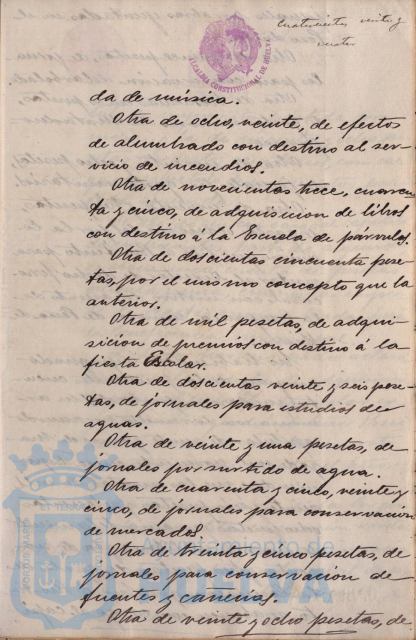 Cuatrocientos veinte y
cuatro
ALCALDIA CONSTITUCIONAL DE HUELVA
da de música.
Otra de ocho, veinte, de efectos
de alumbrado con destino al ser-
vicio de incendios.
Otra de novecientas trece, cuaren-
ta y cinco, de adquisicion de libros
con destino á la Escuela de párvulos.
Otra de doscientas cincuenta pese-
tas, por el mismo concepto que la
anterior.
Otra de mil pesetas, de adqui-
sicion de premios con destino á la
fiesta Escolar.
Otra de doscientas veinte y seis pese-
tas, de jornales para estudios de
aguas.
Otra de veinte y una pesetas, de
jornales por surtido de agua.
Otra de cuarenta y cinco, veinte y
cinco, de jornales para conservacion
de mercados.
Otra de treinta y cinco pesetas, de
jornales para conservacion de
fuentes y cañerias.
Otra de veinte y ocho pesetas, de
Ayuntamiento de
HUELVA